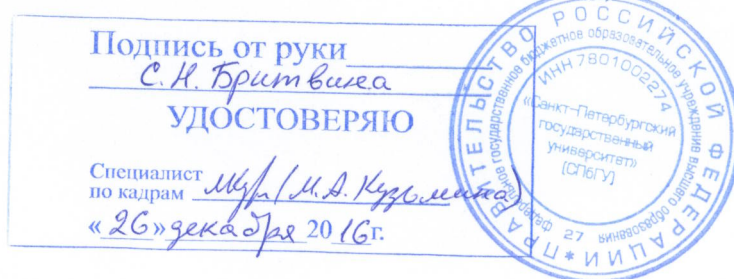 Подпись от руки
С. Н. Бритвина
УДОСТОВЕРЯЮ
Специалист
по кадрам (И.А. Кузьмина)
«26» декабря 2016г.
ПРАВИТЕЛЬСТВО РОССИЙСКОЙ ФЕДЕРАЦИИ *
федеральное государственное бюджетное образовательное учреждение высшего образования
ИНН 7801002274
«Санкт-Петербургский
государственный
университет»
(СПбГУ)
27